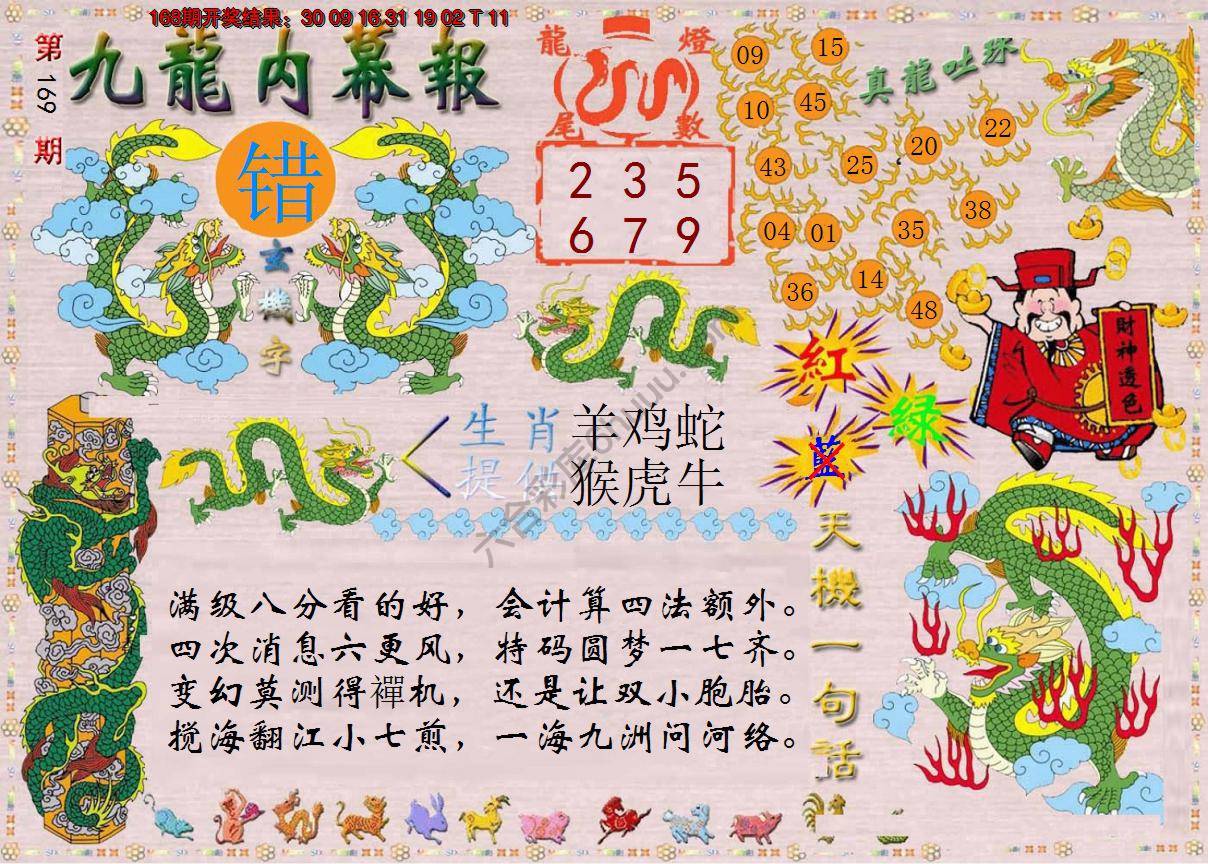 168期开奖结果：30 09 16 31 19 02 T 11
第169期
九龍内幕報
错
玄機字
龍燈
尾數
2 3 5
6 7 9
真龍吐珠
09 15
10 45
22
20
43 25
38
35
04 01
14
36
48
財神透色
紅
綠
藍
生肖
提供
羊鸡蛇
猴虎牛
天機一句話
满级八分看的好，会计算四法额外。
四次消息六更风，特码圆梦一七齐。
变幻莫测得襌机，还是让双小胞胎。
搅海翻江小七煎，一海九洲问河络。